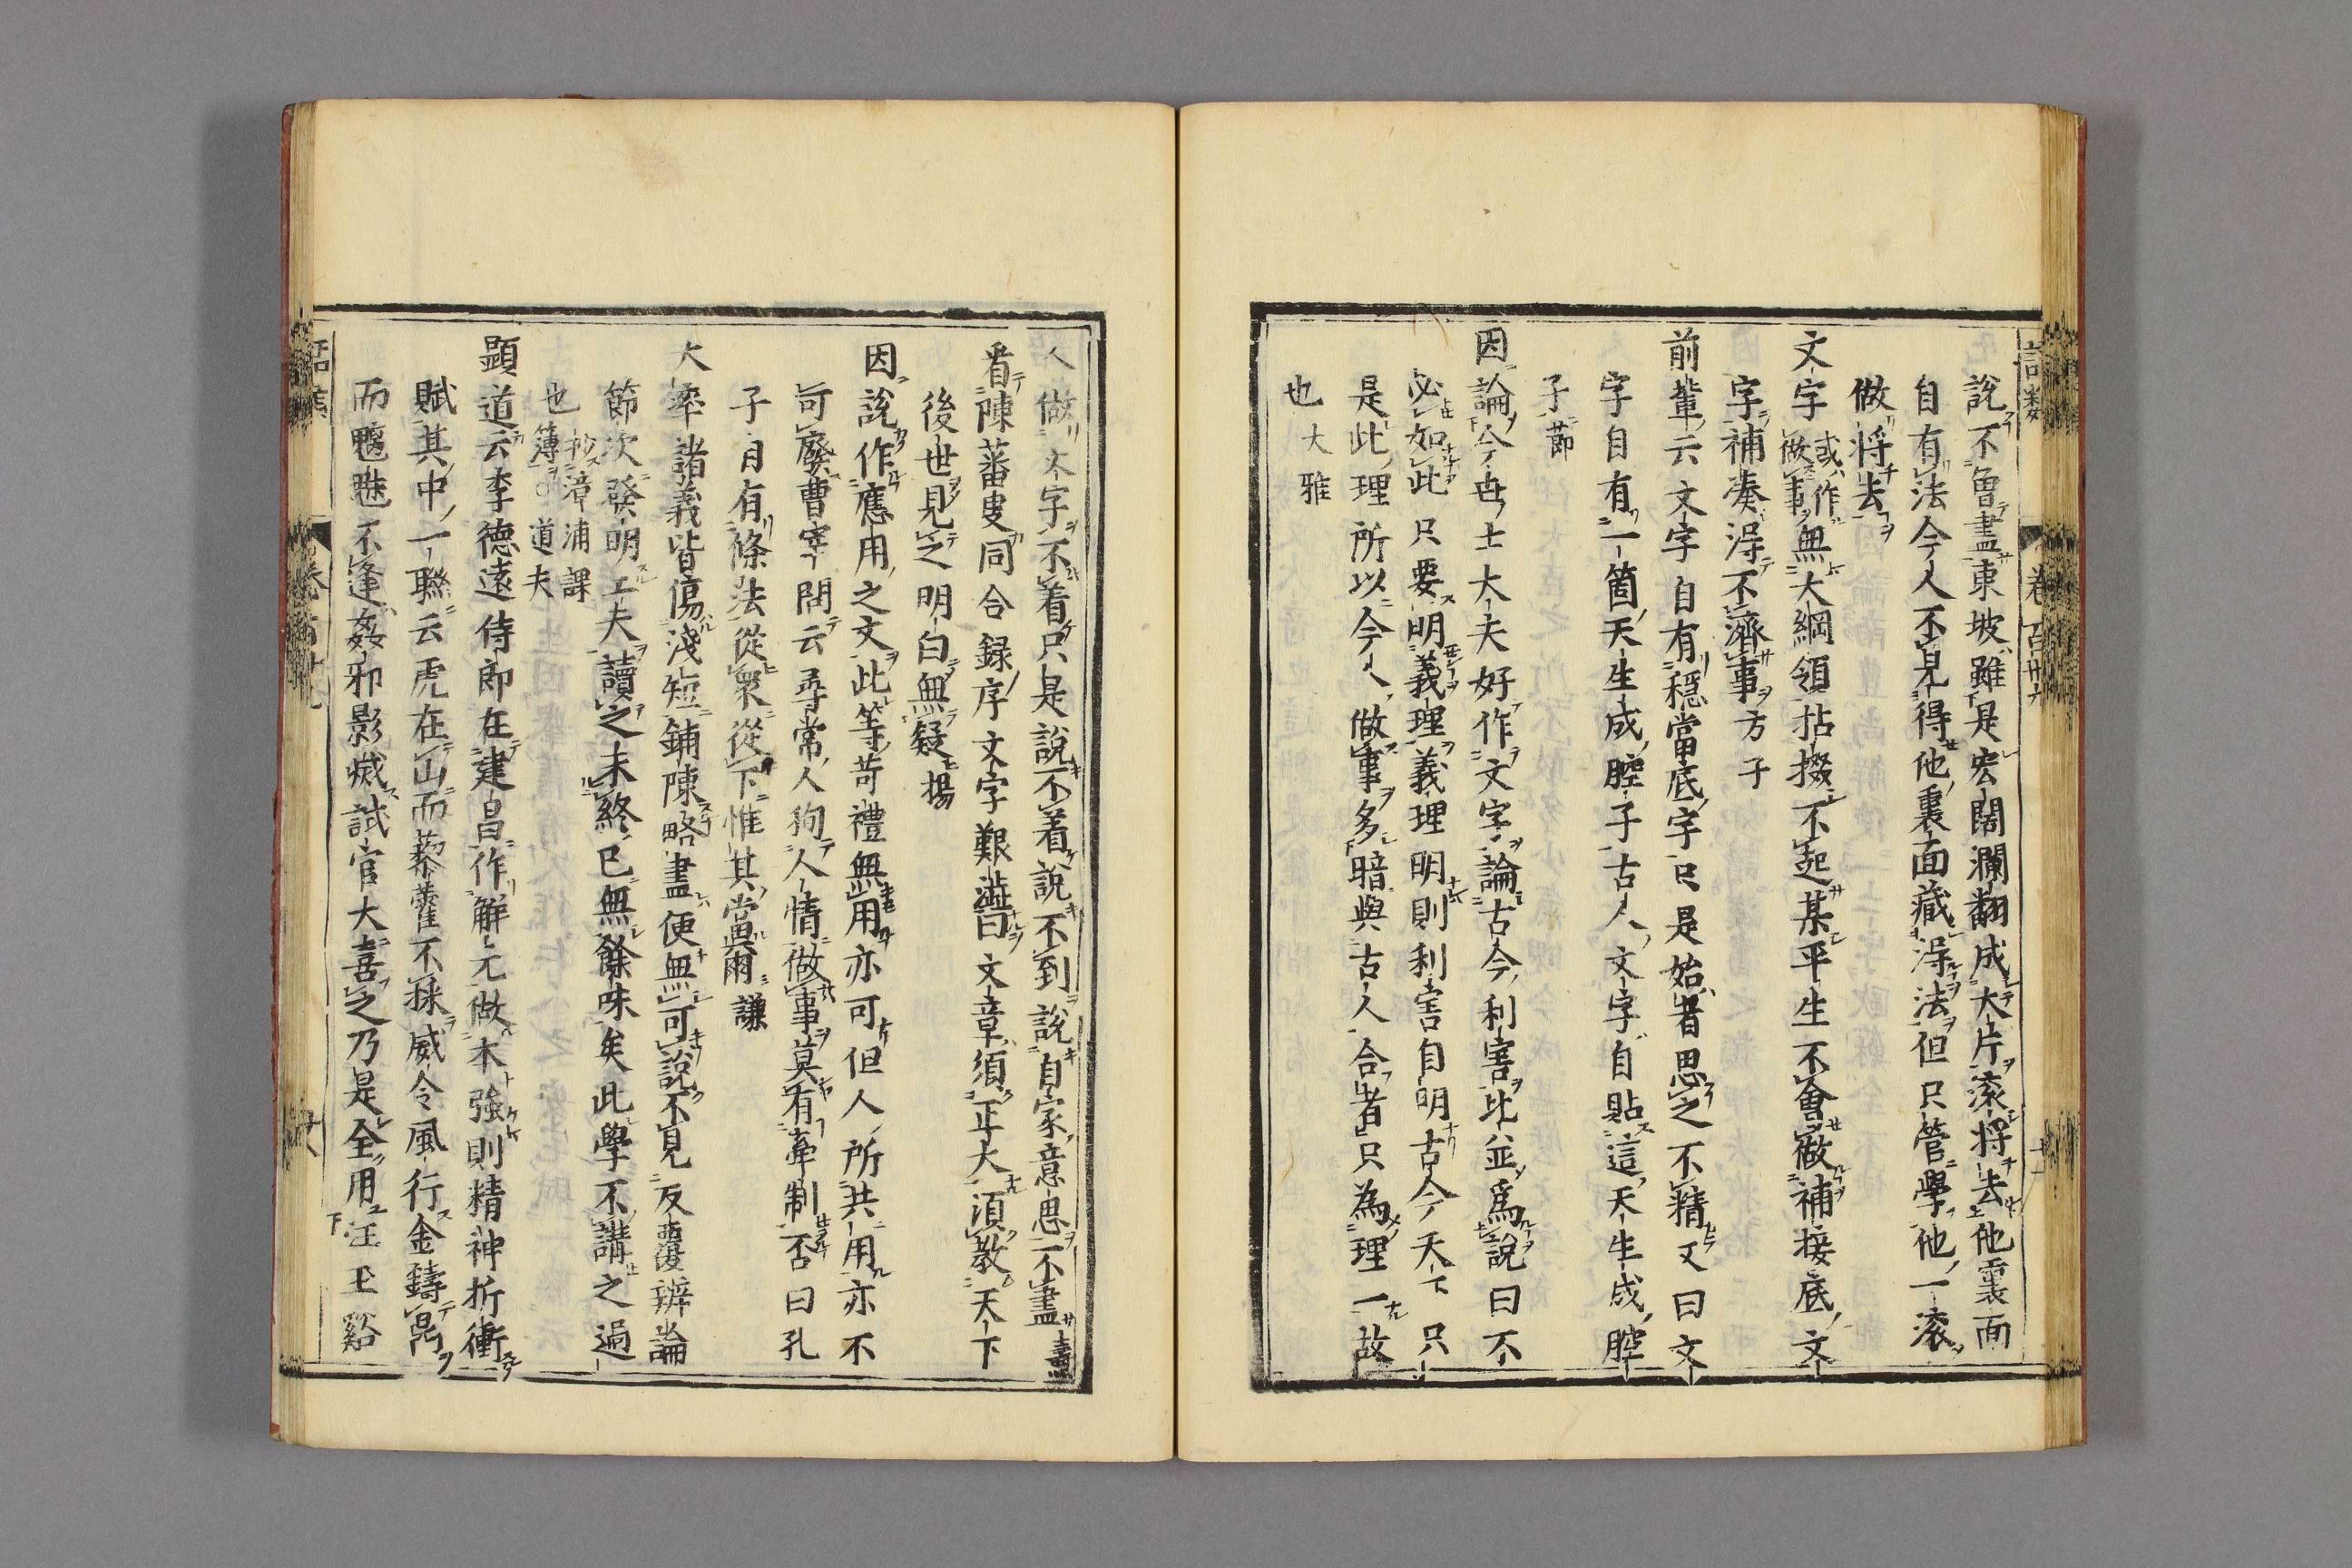 說不曽盡東坡雖是宏闊瀾翻成大片滚将去他裏面
自有法今人不見得他裏面藏得法但只管學他一滚
做将去
文字或作做事無大綱領拈掇不起某平生不會做補接底文
字補湊得不濟事方子
前輩云文字自有穩當底字只是始者思之不精又曰文
字自有一箇天生成腔子古人文字自貼這天生成腔
子節
因論今世士大夫好作文字論古今利害比並爲說曰不
必如此只要明義理義理明則利害自明古今天下只
是此理所以今人做事多暗與古人合者只為理一故
也大雅
人做文字不着只是說不着說不到說自家意思不盡燾
看陳蕃叟同合録序文字艱澁曰文章須正大須教天下
後世見之明白無疑揚
因說作應用之文此等苛禮無用亦可但人所共用亦不
可廢曹宰問云尋常人狥人情做事莫有牽制否曰孔
子自有條法從衆從下惟其當爾謙
大率諸義皆傷淺短鋪陳略盡便無可說不見反覆辨論
節次發明工夫讀之未終已無餘味矣此學不講之過
也抄漳浦課簿〇道夫
顕道云李德遠侍郎在建昌作解元做本強則精神折衝
賦其中一聯云虎在山而藜藿不採威令風行金鑄鼎
而魍魎不逢姦邪影滅試官大喜之乃是全用汪玉谿